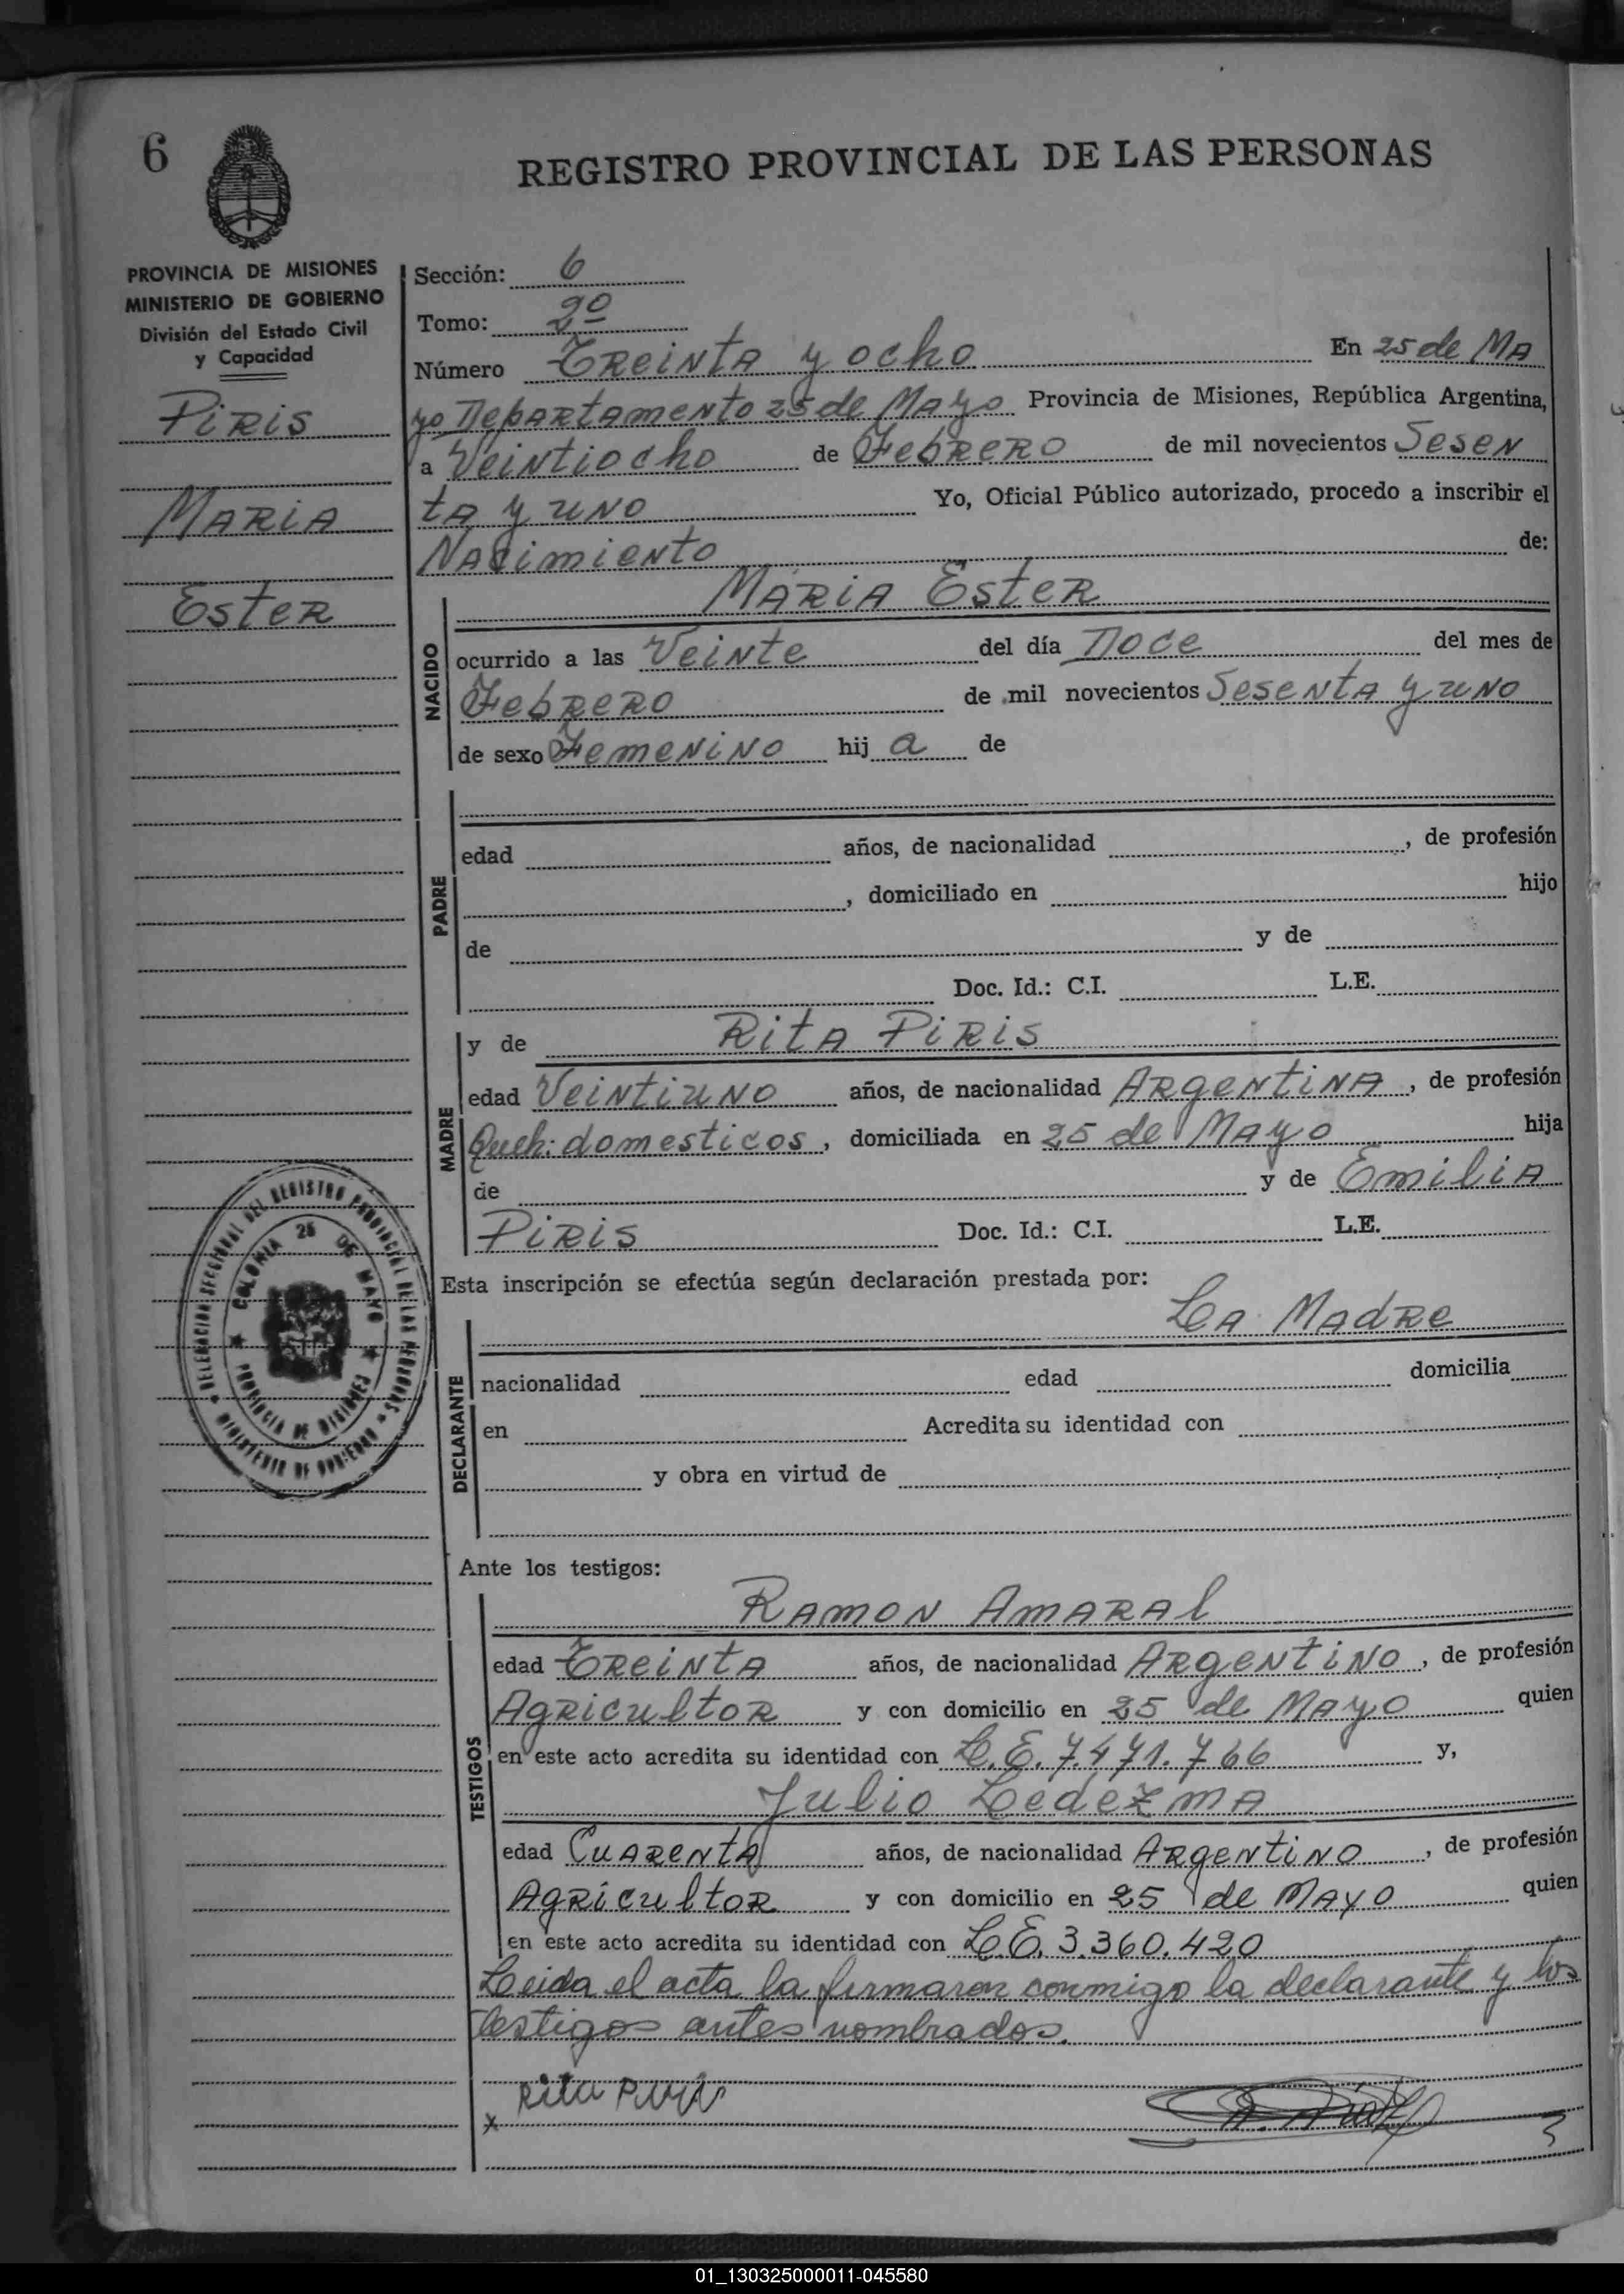 6
REGISTRO PROVINCIAL DE LAS PERSONAS
PROVINCIA DE MISIONES
MINISTERIO DE GOBIERNO
División del Estado Civil
y Capacidad
Piris
Maria
Ester
Sección: 6
Tomo: 2º
Número Treinta y ocho En 25 de Ma
yo Departamento 25 de Mayo Provincia de Misiones, República Argentina,
a Veintiocho de Febrero de mil novecientos Sesen
ta y uno Yo, Oficial Público autorizado, procedo a inscribir el
Nacimiento de:
NACIDO
Maria Ester
ocurrido a las Veinte del día Doce del mes de
Febrero de mil novecientos Sesenta y uno
de sexo Femenino hij a de
PADRE
edad años, de nacionalidad , de profesión
, domiciliado en hijo
de y de
Doc. Id.: C.I. L.E.
MADRE
y de Rita Piris
edad Veintiuno años, de nacionalidad Argentina, de profesión
Queh: domesticos, domiciliada en 25 de Mayo hija
de y de Emilia
Piris Doc. Id.: C.I. L.E.
DELEGACION SECCIONAL DEL REGISTRO PROVINCIAL DE LAS PERSONAS
MINISTERIO DE GOBIERNO
COLONIA 25 DE MAYO
PROVINCIA DE MISIONES
Esta inscripción se efectúa según declaración prestada por:
DECLARANTE
La Madre
nacionalidad edad domicilia
en Acredita su identidad con
y obra en virtud de
Ante los testigos:
TESTIGOS
Ramon Amaral
edad Treinta años, de nacionalidad Argentino, de profesión
Agricultor y con domicilio en 25 de Mayo quien
en este acto acredita su identidad con L.E. 7.471.766 y,
Julio Ledezma
edad Cuarenta años, de nacionalidad Argentino, de profesión
Agricultor y con domicilio en 25 de Mayo quien
en este acto acredita su identidad con L.E. 3.360.420
Leida el acta la firmaron conmigo la declarante y los
testigos antes nombrados.
Rita Piris
x
01_130325000011-045580